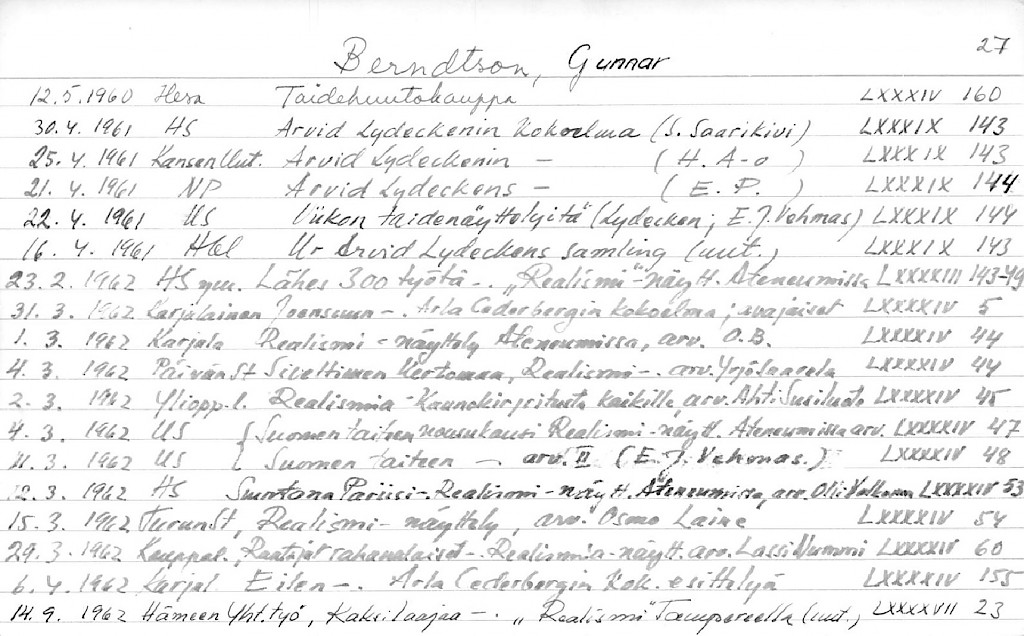 27
Berndtson, Gunnar
12.5.1960 Hesa Taidehuutokauppa LXXXIV 160
30.4. 1961 HS Arvid Lydeckenin kokoelma (S. Saarikivi) LXXXIX 143
25.4. 1961 KansenUut. Arvid Lydeckenin – (H. A-o) LXXXIX 143
21. 4. 1961 NP Arvid Lydeckens – (E. P.) LXXXIX 144
22. 4. 1961 US Viikon taidenäyttelyitä (Lydecken; E.J. Vehmas) LXXXIX 144
16. 4. 1961 Hbl Ur Arvid Lydeckens samling (uut.) LXXXIX 143
23. 2. 1962 HS ym. Lähes 300 työtä -. "Realismi"-näytt. Ateneumissa LXXXXIII 143-49
31. 3. 1962 Karjalainen Joensuun -. Arla Cederbergin kokoelma; avajaiset LXXXXIV 5
1. 3. 1962 Karjala Realismi - näyttely Ateneumissa, arv. O.B. LXXXXIV 44
4. 3. 1962 PäivänSt Siveltimen kertomaa, Realismi -. arv. Yrjö Saarela LXXXXIV 44
2. 3. 1962 Yliopp.l. Realismia - Kaunokirjoitusta kaikille, arv. Ahti Susiluoto LXXXXIV 45
4. 3. 1962 US { Suomen taiteen nousukausi Realismi - näytt. Ateneumissa arv. LXXXXIV 47
11. 3. 1962 US { Suomen taiteen – arv. II (E. J. Vehmas.) LXXXXIV 48
12. 3. 1962 HS Pariisi -. Realismi - näytt. Ateneumissa, arv. Olli Valkonen LXXXXIV 53
15. 3. 1962 TurunSt, Realismi - näyttely, arv. Osmo Laine LXXXXIV 54
29. 3. 1962 Kauppal., Raatajat rahanalaiset -. Realismia - näytt. arv. Lassi Nummi LXXXXIV 60
6. 4. 1962 Karjal Eilen -. Arla Cederbergin kok. esittelyä LXXXXIV 155
14. 9. 1962 Hämeen Yht.työ, Kaksi laajaa -. "Realismi" Tampereella (uut.) LXXXXVII 23